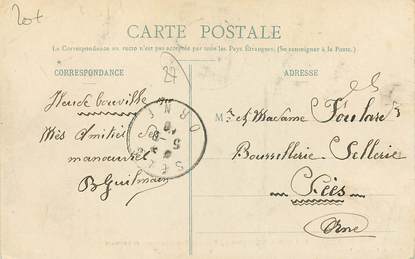 20+
CARTE POSTALE
La Correspondance au recto n'est pas acceptée par tous les Pays Étrangers. (Se renseigner à la Poste.)
CORRESPONDANCE
27
ADRESSE
Mes Amitiés
B Guilmain
ORNE
Mr et Madame Foulard
Bourrellerie Sellerie
Sées
Orne